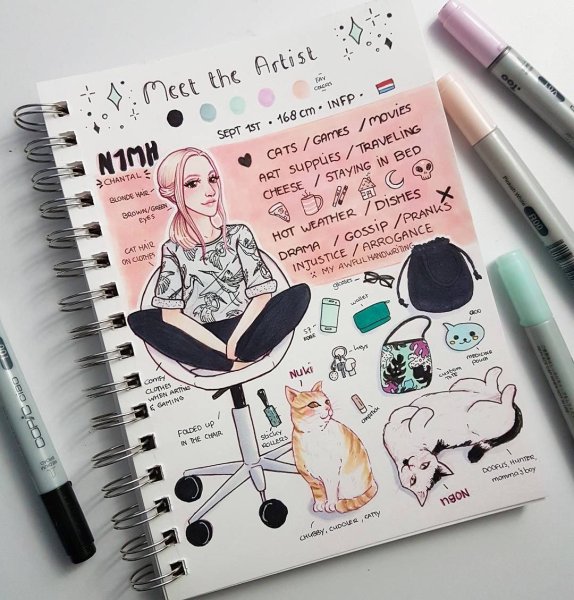 Meet the Artist
FAV
COLORS
SEPT 1ST • 168 cm • INFP •
N1MH
CHANTAL
BLONDE HAIR
BROWN/GREEN
EYES
CAT HAIR
ON CLOTHES
CATS / GAMES / MOVIES
ART SUPPLIES / TRAVELING
CHEESE / STAYING IN BED
HOT WEATHER / DISHES
DRAMA / GOSSIP / PRANKS
INJUSTICE / ARROGANCE
MY AWFUL HANDWRITING
glasses
wallet
S7
EDGE
keys
CUSTOM
TOTE
MEDICINE
POUCH
CHAPSTICK
COMFY
CLOTHES
WHEN ARTING
& GAMING
FOLDED UP
IN THE CHAIR
STICKY
ROLLERS
Nuki
CHUBBY, CUDDLER, CATTY
NOBU
DOOFUS, HUNTER,
momma's boy
COPIC ciao